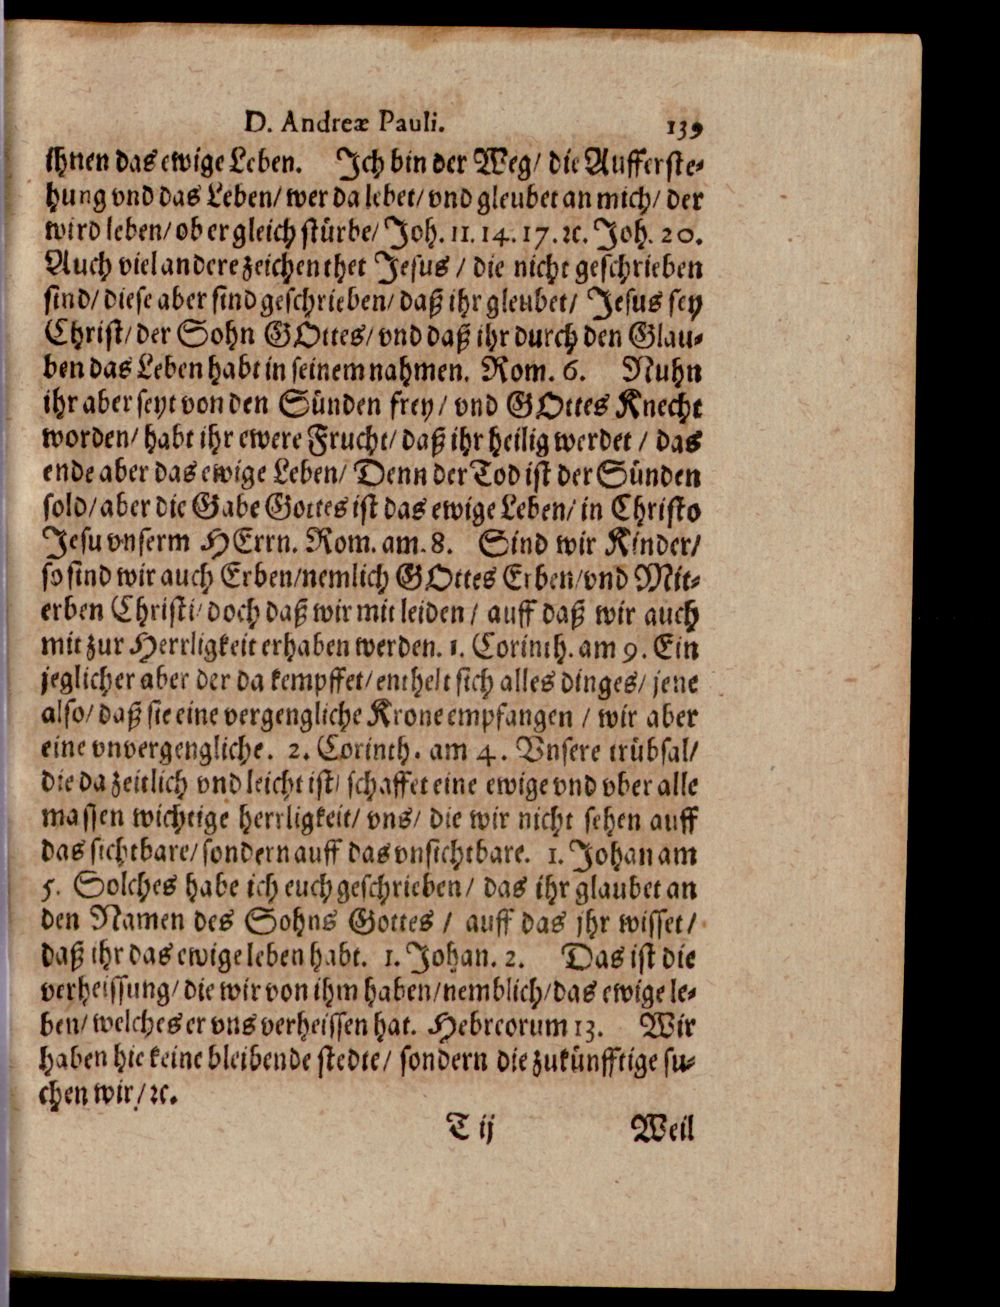 D. Andreæ Pauli. 139
ihnen das ewige Leben. Ich bin der Weg/ die Aufferste-
hung vnd das Leben/ wer da lebet/ vnd gleubet an mich/ der
wird leben/ ob er gleich stürbe/ Joh. 11. 14. 17. ꝛc. Joh. 20.
Auch viel andere zeichen thet Jesus / die nicht geschrieben
sind/ diese aber sind geschrieben/ daß ihr gleubet/ Jesus sey
Christ/ der Sohn GOttes/ vnd daß ihr durch den Glau-
ben das Leben habt in seinem nahmen. Rom. 6. Nuhn
ihr aber seyt von den Sünden frey / vnd GOttes Knecht
worden/ habt ihr ewere Frucht/ daß ihr heilig werdet / das
ende aber das ewige Leben/ Denn der Tod ist der Sünden
sold/ aber die Gabe Gottes ist das ewige Leben/ in Christo
Jesu vnserm HErrn. Rom. am. 8. Sind wir Kinder/
so sind wir auch Erben/ nemlich GOttes Erben/ vnd Mit-
erben Christi/ doch daß wir mit leiden / auff daß wir auch
mit zur Herrligkeit erhaben werden. 1. Corinth. am 9. Ein
jeglicher aber der da kempffet/ enthelt sich alles dinges/ jene
also/ daß sie eine vergengliche Krone empfangen / wir aber
eine vnvergengliche. 2. Corinth. am 4. Vnsere trübsal/
die da zeitlich vnd leicht ist/ schaffet eine ewige vnd vber alle
massen wichtige herrligkeit/ vns/ die wir nicht sehen auff
das sichtbare/ sondern auff das vnsichtbare. 1. Johan am
5. Solches habe ich euch geschrieben/ das ihr glaubet an
den Namen des Sohns Gottes / auff das jhr wisset/
daß ihr das ewige leben habt. 1. Johan. 2. Das ist die
verheissung/ die wir von ihm haben/ nemblich/ das ewige le-
ben/ welches er vns verheissen hat. Hebreorum 13. Wir
haben hie keine bleibende stedte/ sondern die zukünfftige su-
chen wir/ ꝛc.
T ij Weil